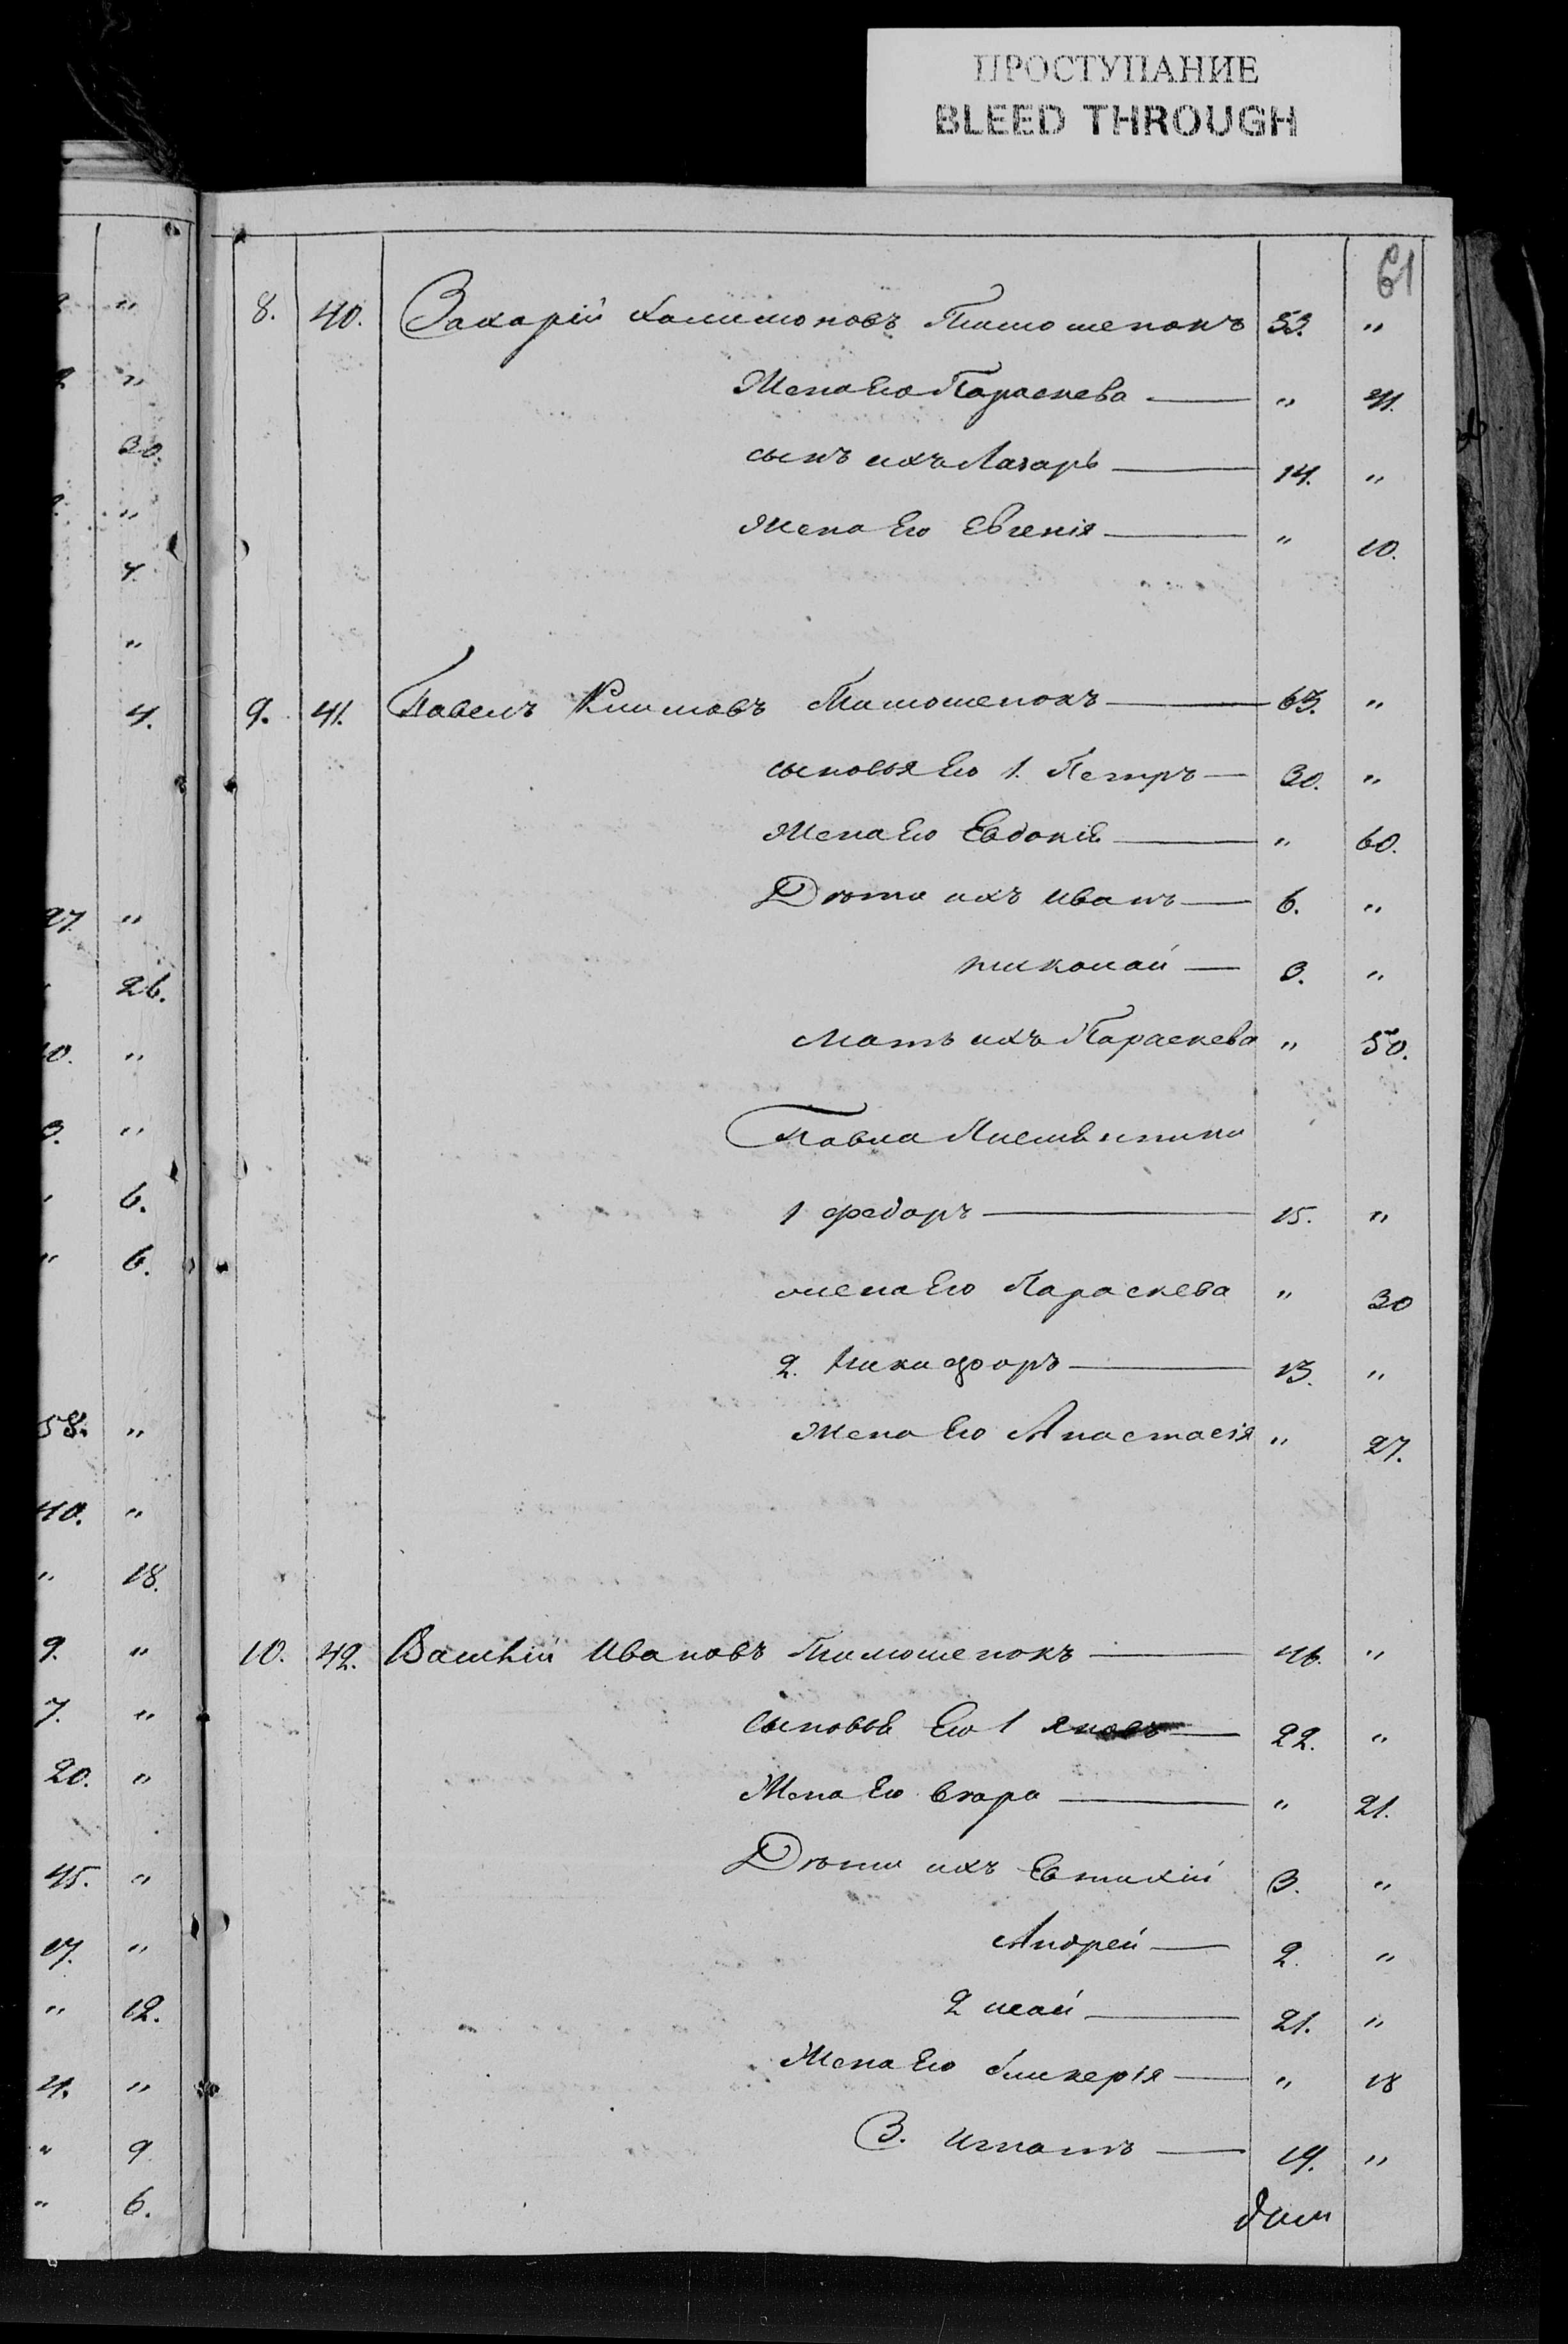 ПРОСТУПАНИЕ
BLEED THROUGH
61
8. 40. Захарій Халимоновъ Тимошенокъ 53. "
Жена Его Параскева — " 41.
сынъ ихъ Лазарь — 14. "
жена Его Евгенія — " 10.
9. 41. Павелъ Климовъ Тимошенокъ — 63. "
сыновья Его 1. Петръ — 30. "
Жена Его Евдокія — " 60.
Дѣти ихъ Иванъ — 6. "
николай — 3. "
мать ихъ Параскева " 50.
Павла
1 федоръ — 15. "
жена Его Параскева " 30
2. Никифоръ — 13. "
жена Его Анастасія " 27.
10. 42. Василій Ивановъ Тимошенокъ — 46. "
сыновья Его 1 яковъ — 22. "
Жена Его — " 21.
Дѣти ихъ Евтихій 3. "
Андрей — 2. "
2 исай — 21. "
Жена Его Гликерія — " 18
3. Игнатъ — 19. "